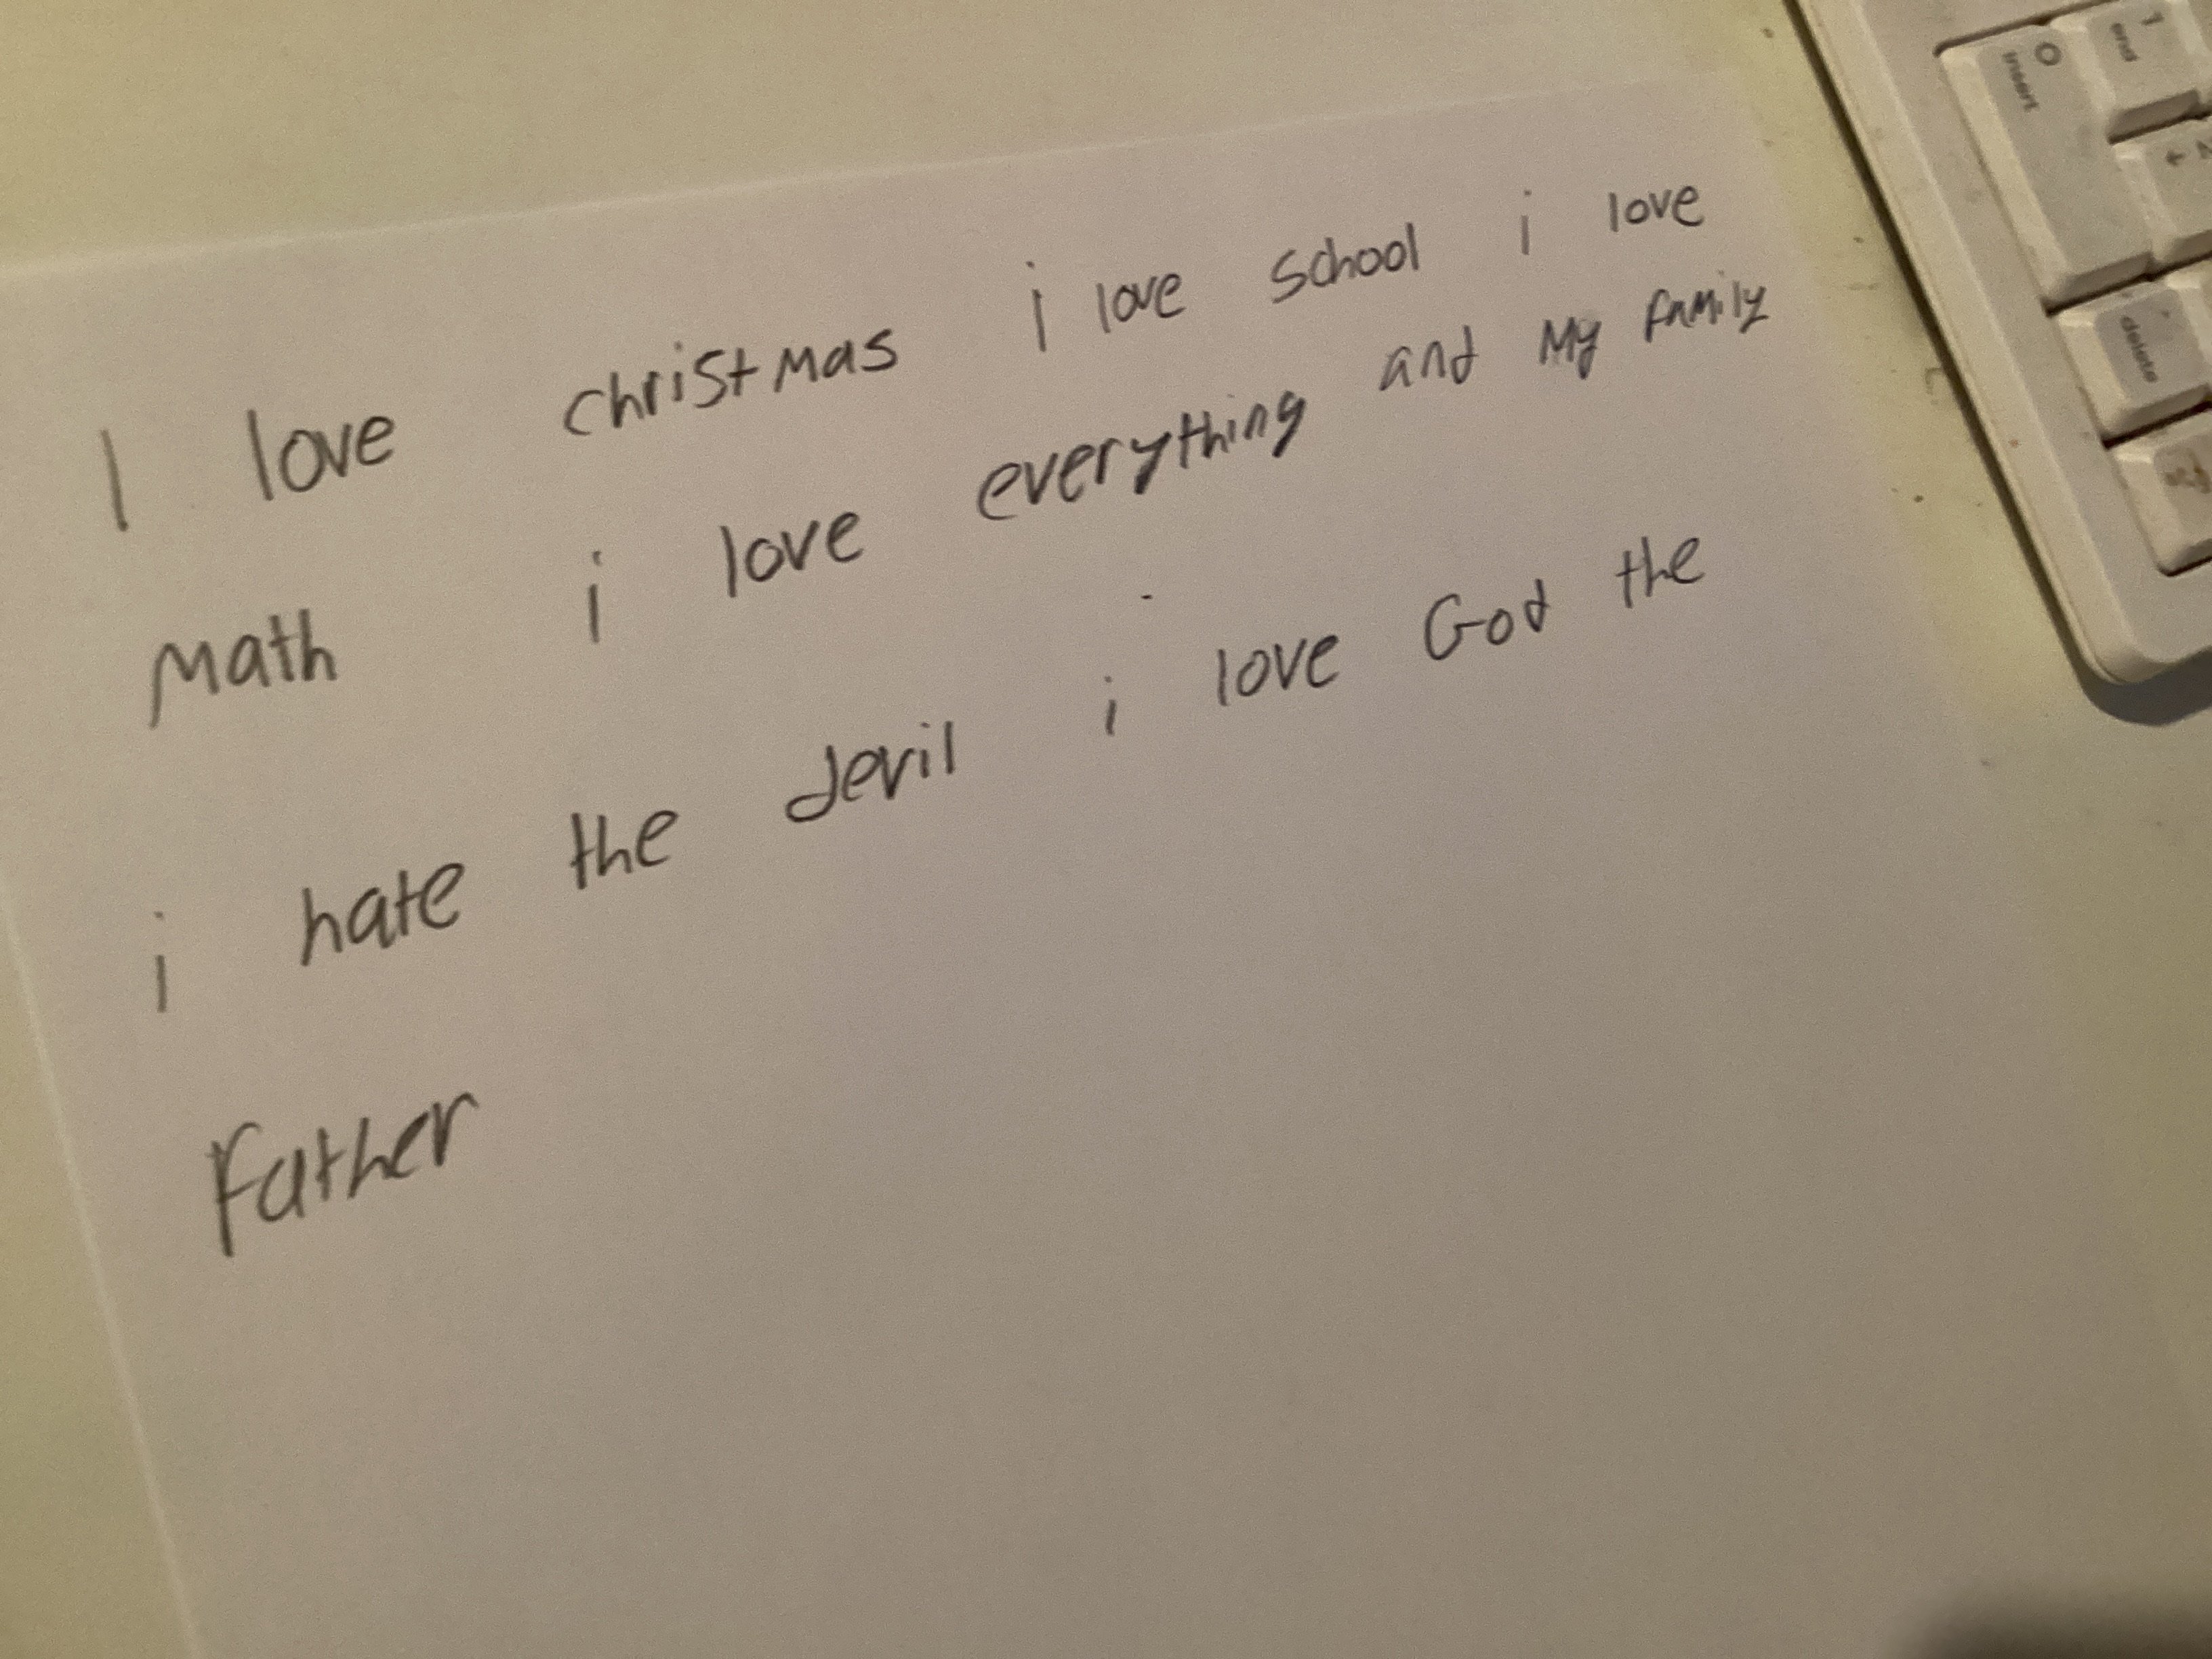 I love christmas i love school i love
Math i love everything and My family
i hate the devil i love God the
Father
0
insert
1
end
2
delete